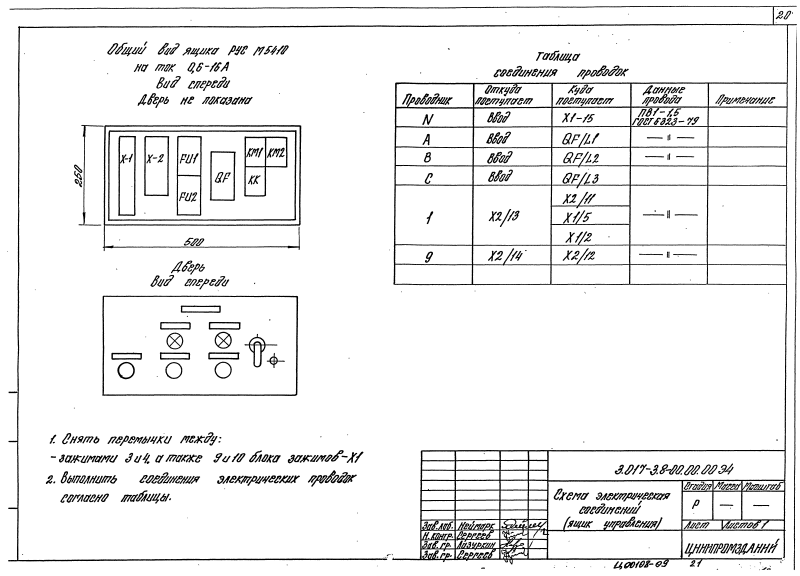 20
Общий вид ящика РУС М5410
на ток 0,6-16А
Вид спереди
Дверь не показана
X-1 X-2 FU1 FU2 QF КМ1 КМ2 КК
250
500
Дверь
Вид спереди
1. Снять перемычки между:
- зажимами 3 и 4, а также 9 и 10 блока зажимов-X1
2. Выполнить соединения электрических проводок
согласно таблицы.
Таблица
соединения проводок
Проводник Откуда поступает Куда поступает Данные провода Примечание
N Ввод X1-15 ПВ1-1,5 ГОСТ 6323-79
A Ввод QF/L1 — " —
B Ввод QF/L2 — " —
C Ввод QF/L3
1 X2/13 X2/11 — " —
X1/5
X1/2
9 X2/14 X2/12 — " —
3.017-3.8-00.00.00 Э4
Схема электрическая
соединений
(ящик управления)
Стадия Масса Масштаб
Р — —
Лист Листов 1
ЦНИИПРОМЗДАНИЙ
Зав.лаб. Неймарк
Н.контр. Сергеев
Зав. гр. Лазуркин
Зав. гр. Сергеев
Ц00108-09 21